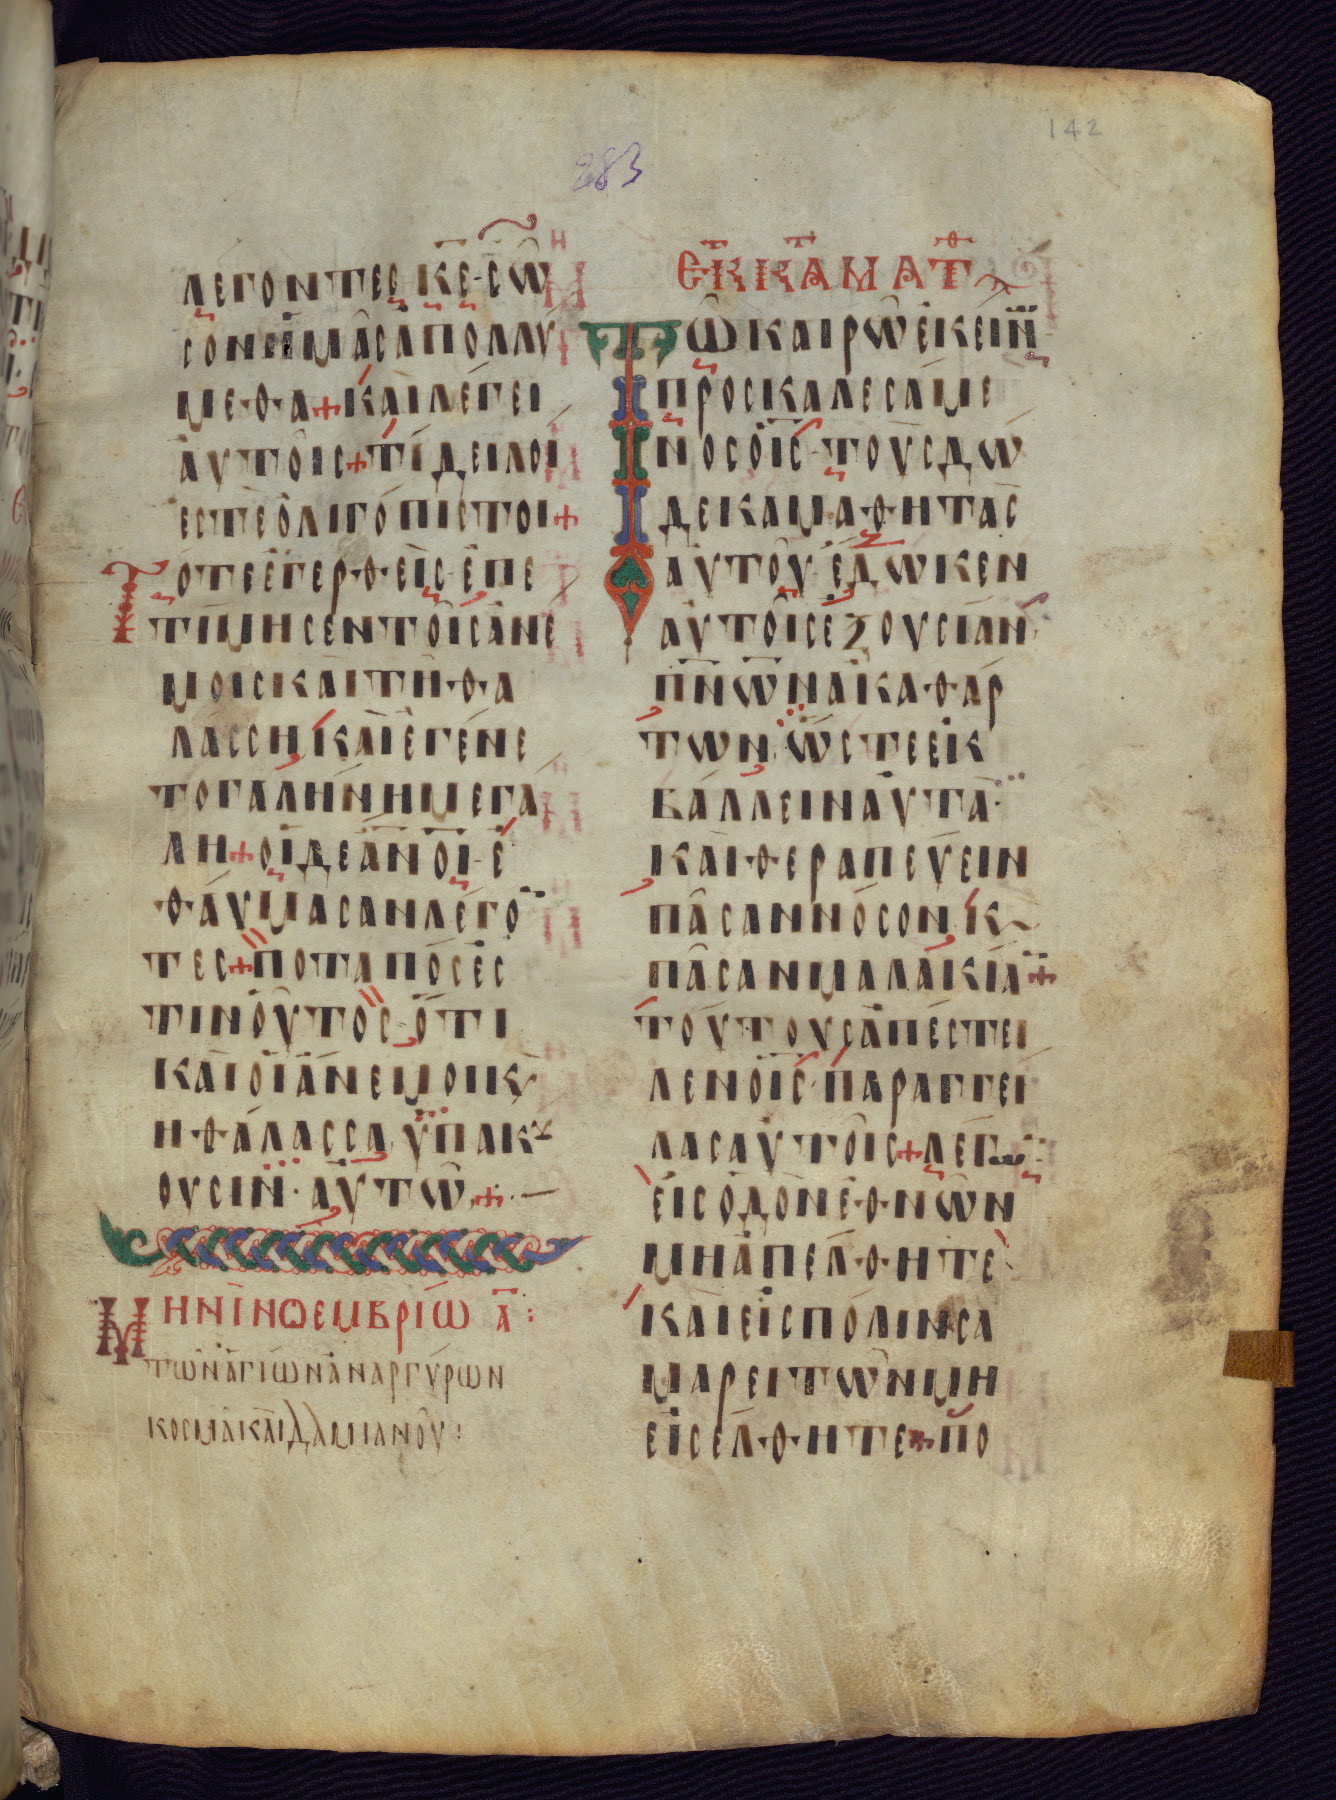 142
283
ΛΕΓΟΝΤΕΣ ΚΕ Σῶ
ΣΟΝ ΗΜΑΣ ΑΠΟΛΛΥ
ΜΕΘΑ + ΚΑΙ ΛΕΓΕΙ
ΑΥΤΟΙΣ + ΤΙ ΔΕΙΛΟΙ
ΕΣΤΕ ΟΛΙΓΟΠΙΣΤΟΙ +
ΤΟΤΕ ΕΓΕΡΘΕΙΣ ΕΠΕ
ΤΙΜΗΣΕΝ ΤΟΙΣ ΑΝΕ
ΜΟΙΣ ΚΑΙ ΤΗ ΘΑ
ΛΑΣΣΗ ΚΑΙ ΕΓΕΝΕ
ΤΟ ΓΑΛΗΝΗ ΜΕΓΑ
ΛΗ + ΟΙ ΔΕ ΑΝΟΙ Ε
ΘΑΥΜΑΣΑΝ ΛΕΓΟ
ΤΕΣ + ΠΟΤΑΠΟΣ ΕΣ
ΤΙΝ ΟΥΤΟΣ ΟΤΙ
ΚΑΙ ΟΙ ΑΝΕΜΟΙ Κ
Η ΘΑΛΑΣΣΑ ΥΠΑΚ
ΟΥΣΙΝ ΑΥΤΩ +
ΜΗΝΙ ΝΟΕΜΒΡΙΩ Α :
ΤΩΝ ΑΓΙΩΝ ΑΝΑΡΓΥΡΩΝ
ΚΟΣΜΑ ΚΑΙ ΔΑΜΙΑΝΟΥ :
ΕΚ Κ ΑΜΑΤΘ
ΤΩ ΚΑΙΡΩ ΕΚΕΙΝ
ΠΡΟΣΚΑΛΕΣΑΜΕ
ΝΟΣ Ο ΙΣ ΤΟΥΣ ΔΩ
ΔΕΚΑ ΜΑΘΗΤΑΣ
ΑΥΤΟΥ ΕΔΩΚΕΝ
ΑΥΤΟΙΣ ΕΞΟΥΣΙΑΝ
ΠΝΩΝ ΑΚΑΘΑΡ
ΤΩΝ ΩΣΤΕ ΕΚ
ΒΑΛΛΕΙΝ ΑΥΤΑ
ΚΑΙ ΘΕΡΑΠΕΥΕΙΝ
ΠΑΣΑΝ ΝΟΣΟΝ Κ
ΠΑΣΑΝ ΜΑΛΑΚΙΑ +
ΤΟΥΤΟΥΣ ΑΠΕΣΤΕΙ
ΛΕΝ Ο ΙΣ ΠΑΡΑΓΓΕΙ
ΛΑΣ ΑΥΤΟΙΣ + ΛΕΓΩ
ΕΙΣ ΟΔΟΝ ΕΘΝΩΝ
ΜΗ ΑΠΕΛΘΗΤΕ
ΚΑΙ ΕΙΣ ΠΟΛΙΝ ΣΑ
ΜΑΡΕΙΤΩΝ ΜΗ
ΕΙΣΕΛΘΗΤΕ ΠΟ